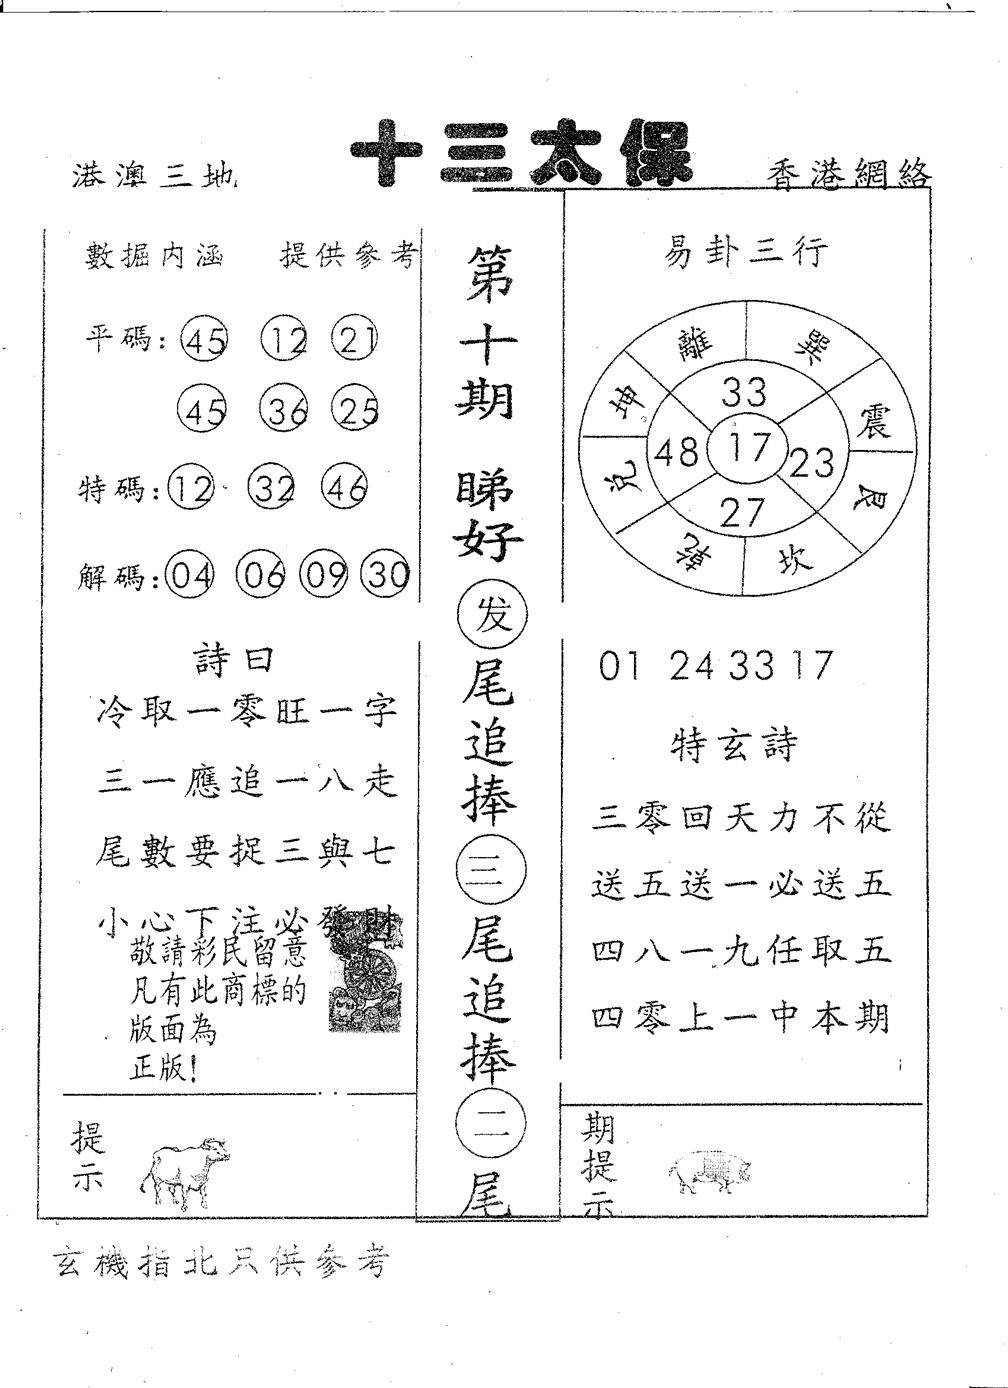 十三太保
港澳三地
香港網絡
數掘内涵 提供參考
平碼: 45 12 21
45 36 25
特碼: 12 32 46
解碼: 04 06 09 30
詩曰
冷取一零旺一字
三一應追一八走
尾數要捉三與七
小心下注必發財
敬請彩民留意
凡有此商標的
版面為
正版!
提示
第十期 睇好发尾追捧三尾追捧二尾
易卦三行
離 巽
坤 33 震
48 17 23
兌 27 艮
乾 坎
01 24 33 17
特玄詩
三零回天力不從
送五送一必送五
四八一九任取五
四零上一中本期
期提示
玄機指北只供參考